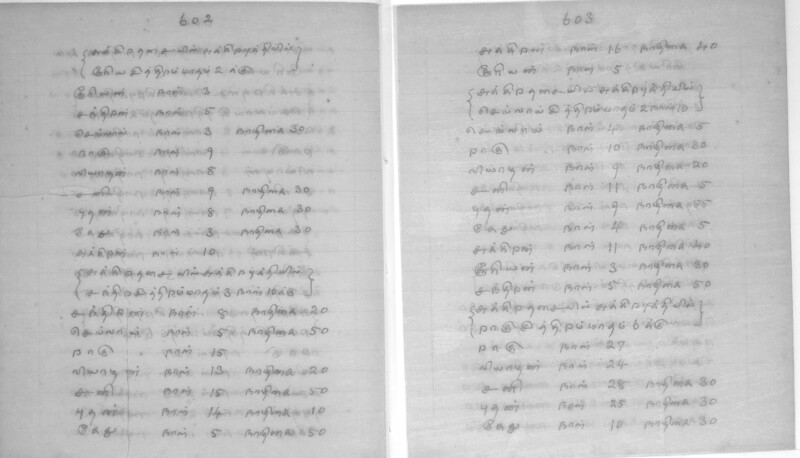 602
சுக்கிரதசையில் சுக்கிரபுத்தியில்
சூரியஅந்திரம் மாதம் 2 க்கு
சூரியன் நாள் 3
சந்திரன் நாள் 5
செவ்வாய் நாள் 3 நாழிகை 30
ராகு நாள் 9
வியாழன் நாள் 8
சனி நாள் 9 நாழிகை 30
புதன் நாள் 8 நாழிகை 30
கேது நாள் 3 நாழிகை 30
சுக்கிரன் நாள் 10
சுக்கிரதசையில் சுக்கிரபுத்தியில்
சந்திரஅந்திரம் மாதம் 3 நாள் 10க்கு
சந்திரன் நாள் 8 நாழிகை 20
செவ்வாய் நாள் 5 நாழிகை 50
ராகு நாள் 15
வியாழன் நாள் 13 நாழிகை 20
சனி நாள் 15 நாழிகை 50
புதன் நாள் 14 நாழிகை 10
கேது நாள் 5 நாழிகை 50
603
சுக்கிரன் நாள் 16 நாழிகை 40
சூரியன் நாள் 5
சுக்கிரதசையில் சுக்கிரபுத்தியில்
செவ்வாய்அந்திரம் மாதம் 2 நாள் 10
செவ்வாய் நாள் 4 நாழிகை 5
ராகு நாள் 10 நாழிகை 30
வியாழன் நாள் 9 நாழிகை 20
சனி நாள் 11 நாழிகை 5
புதன் நாள் 9 நாழிகை 55
கேது நாள் 4 நாழிகை 5
சுக்கிரன் நாள் 11 நாழிகை 40
சூரியன் நாள் 3 நாழிகை 30
சந்திரன் நாள் 5 நாழிகை 50
சுக்கிரதசையில் சுக்கிரபுத்தியில்
ராகுஅந்திரம் மாதம் 6 க்கு
ராகு நாள் 27
வியாழன் நாள் 24
சனி நாள் 28 நாழிகை 30
புதன் நாள் 25 நாழிகை 30
கேது நாள் 10 நாழிகை 30